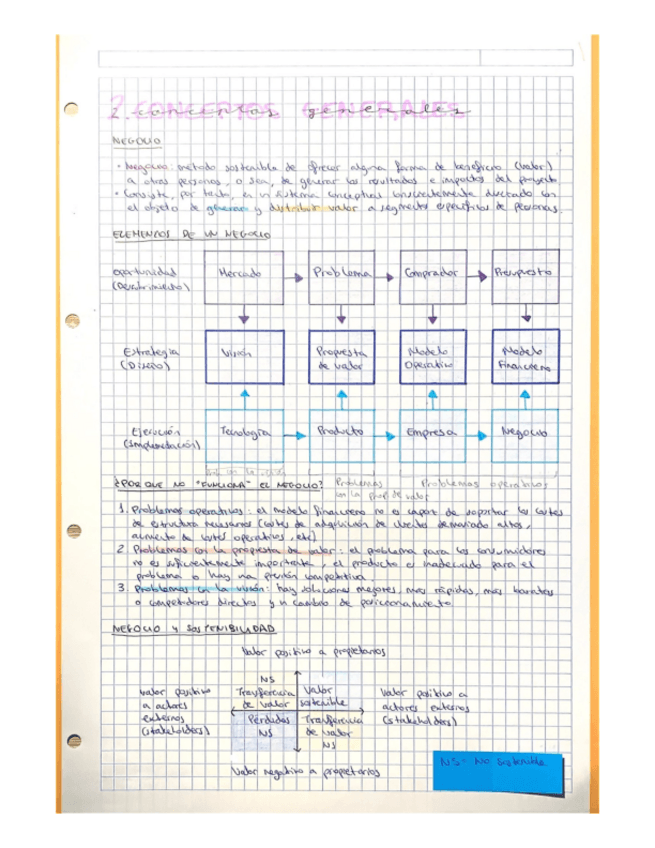 2. CONCEPTOS GENERALES
conceptos generales
NEGOCIO
• Negocio: método sostenible de ofrecer alguna forma de beneficio (valor)
a otras personas, o sea, de generar los resultados e impactos del proyecto
• Consiste, por tanto, en un sistema conceptual conscientemente diseñado con
el objeto de generar y distribuir valor a segmentos específicos de personas.
ELEMENTOS DE UN NEGOCIO
Oportunidad
(Descubrimiento)
Mercado
Problema
Comprador
Presupuesto
Estrategia
(Diseño)
Visión
Propuesta
de valor
Modelo
Operativo
Modelo
Financiero
Ejecución
(Implementación)
Tecnología
Producto
Empresa
Negocio
con la visión
Problemas
con la prop. de valor
Problemas operativos
¿POR QUE NO "FUNCIONA" EL NEGOCIO?
1. Problemas operativos: el modelo financiero no es capaz de soportar los costes
de estructura necesarios (costes de adquisición de clientes demasiado altos,
aumento de costes operativos, etc)
2. Problemas con la propuesta de valor: el problema para los consumidores
no es suficientemente importante, el producto es inadecuado para el
problema o hay una presión competitiva.
3. Problemas en la visión: hay soluciones mejores, más rápidas, más baratas
o competidores directos y un cambio de posicionamiento
NEGOCIO Y SOSTENIBILIDAD
Valor positivo a propietarios
Valor positivo
a actores
externos
(stakeholders)
NS
Trasferencia
de valor
Valor
sostenible
Pérdidas
NS
Trasferencia
de valor
NS
Valor positivo a
actores externos
(stakeholders)
Valor negativo a propietarios
NS - No Sostenible